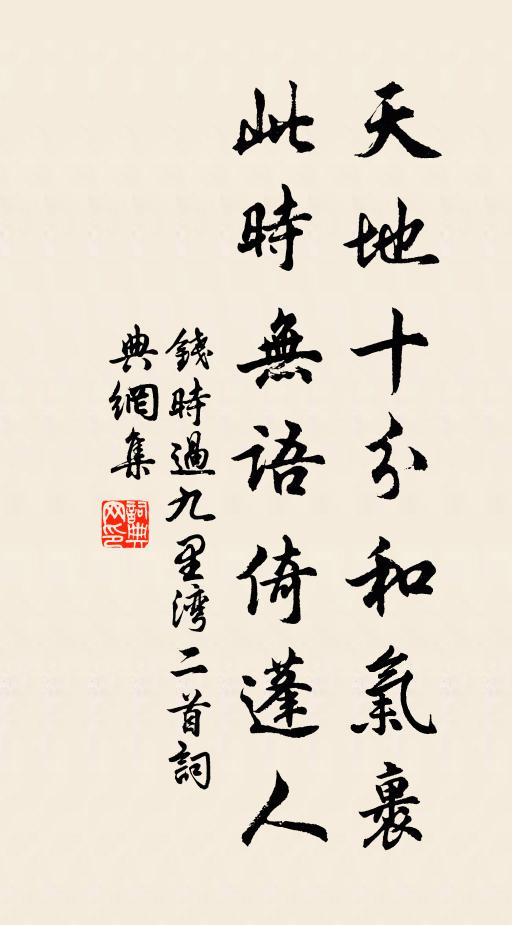 天地十分和氣裹
此時無語倚蓬人
錢時過九里湾二首詞
典網集
詞典
网印